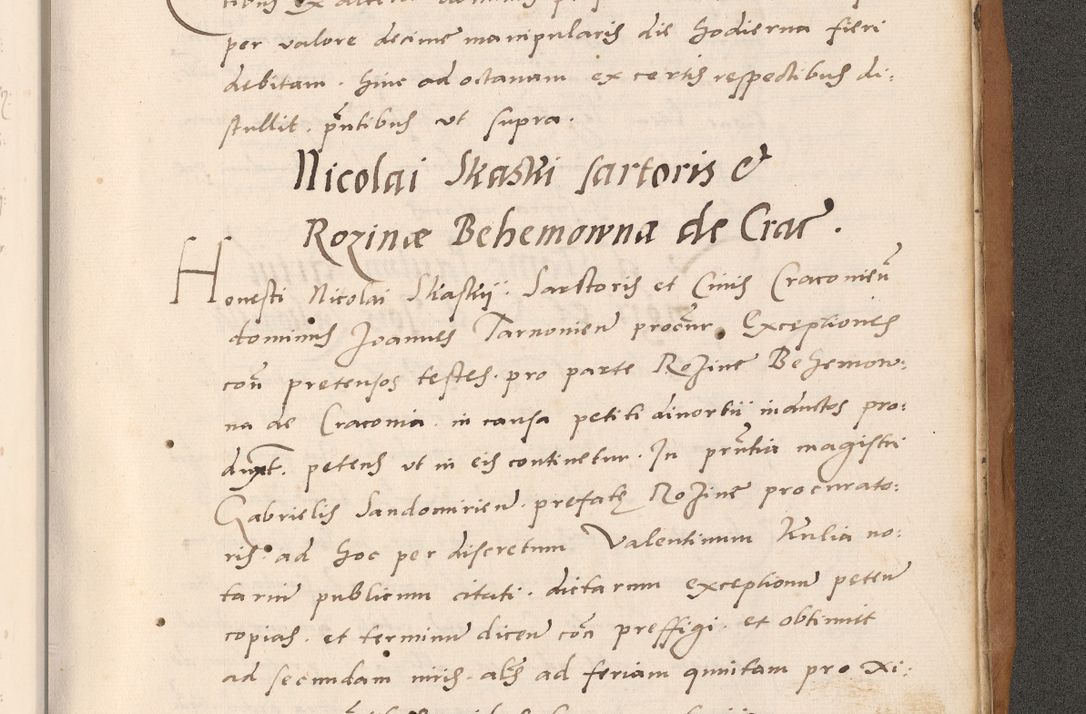 per valore decime manipularis die hodierna fieri
debitam. hinc ad octavam ex certis respectibus di:
stullit. pntibus ut supra.
Nicolai Skaski sartoris &
Rozinæ Behemowna de Crac.
Honesti Nicolai Skaskij. Sarctoris et Civis Cracovien
dominus Joannes Tarnovien procur Exceptiones
con pretensos testes. pro parte Rozine Behemow:
na de Cracovia. in causa petiti divorbii inductos pro:
duxit. petens ut in eis continetur. In pntia magistri
Gabrielis Sandomirien. prefatę Rozine procurato:
ris. ad hoc per discretum Valentinum Kulia no:
tarium publicum citati. dictarum exceptionum peten
copias. et terminum dicen con preffigi. et obtinuit
ad secundam iuris. als ad feriam quintam pro xi: